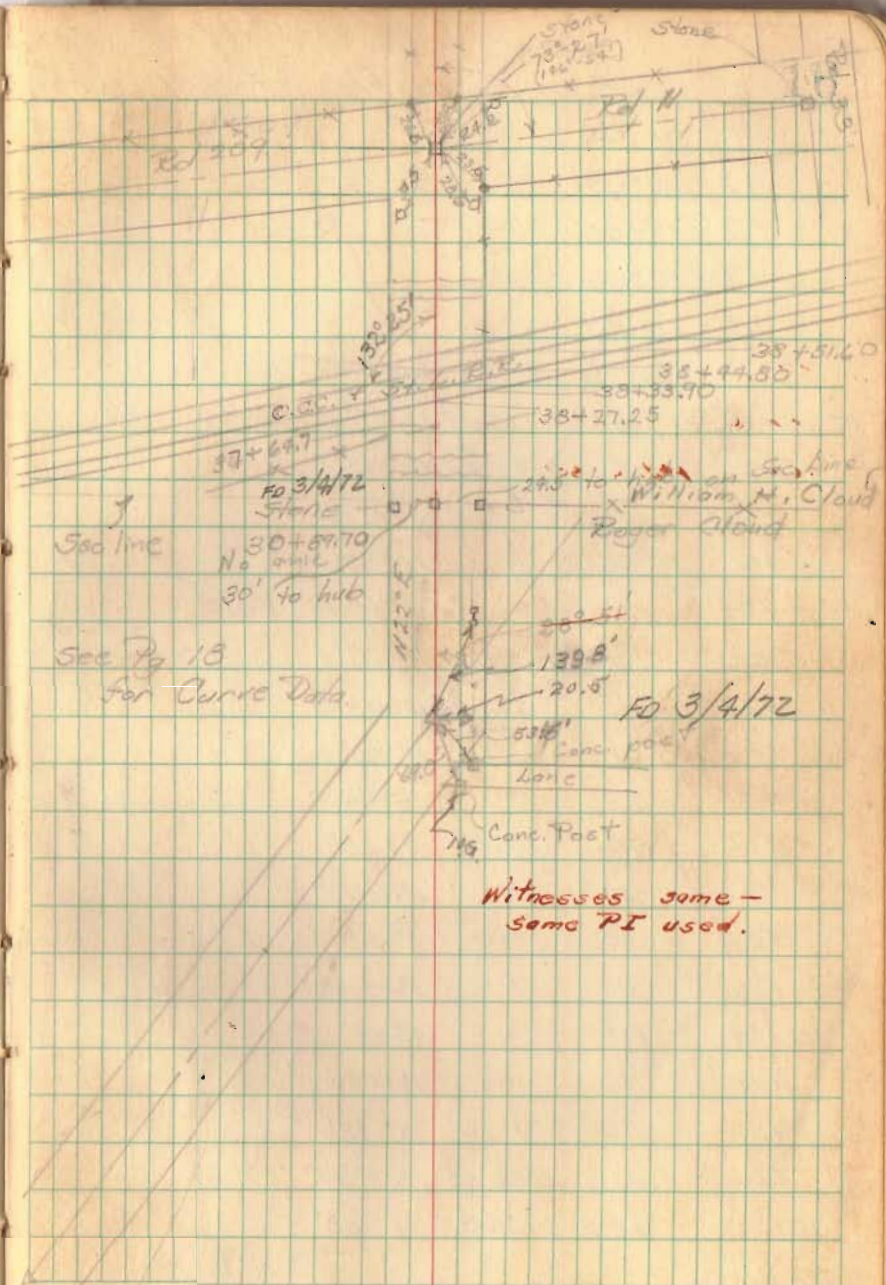 Stone
73°-27'
(146°-54')
Stone
Rd 209
Rd N
24.2
132° 25'
C.C.C. & St. L. R.R.
38+51.60
38+44.80
38+33.90
38+27.25
37+69.7
FD 3/4/72
Stone
24.5 to hub on Sec. line
William H. Cloud
Roger Cloud
Sec line
30+69.70
30' to hub
N 22° E
See Pg 18
for Curve Data.
139.8'
20.5
FD 3/4/72
Conc. post
Lane
Conc. Post
Witnesses same –
same PI used.